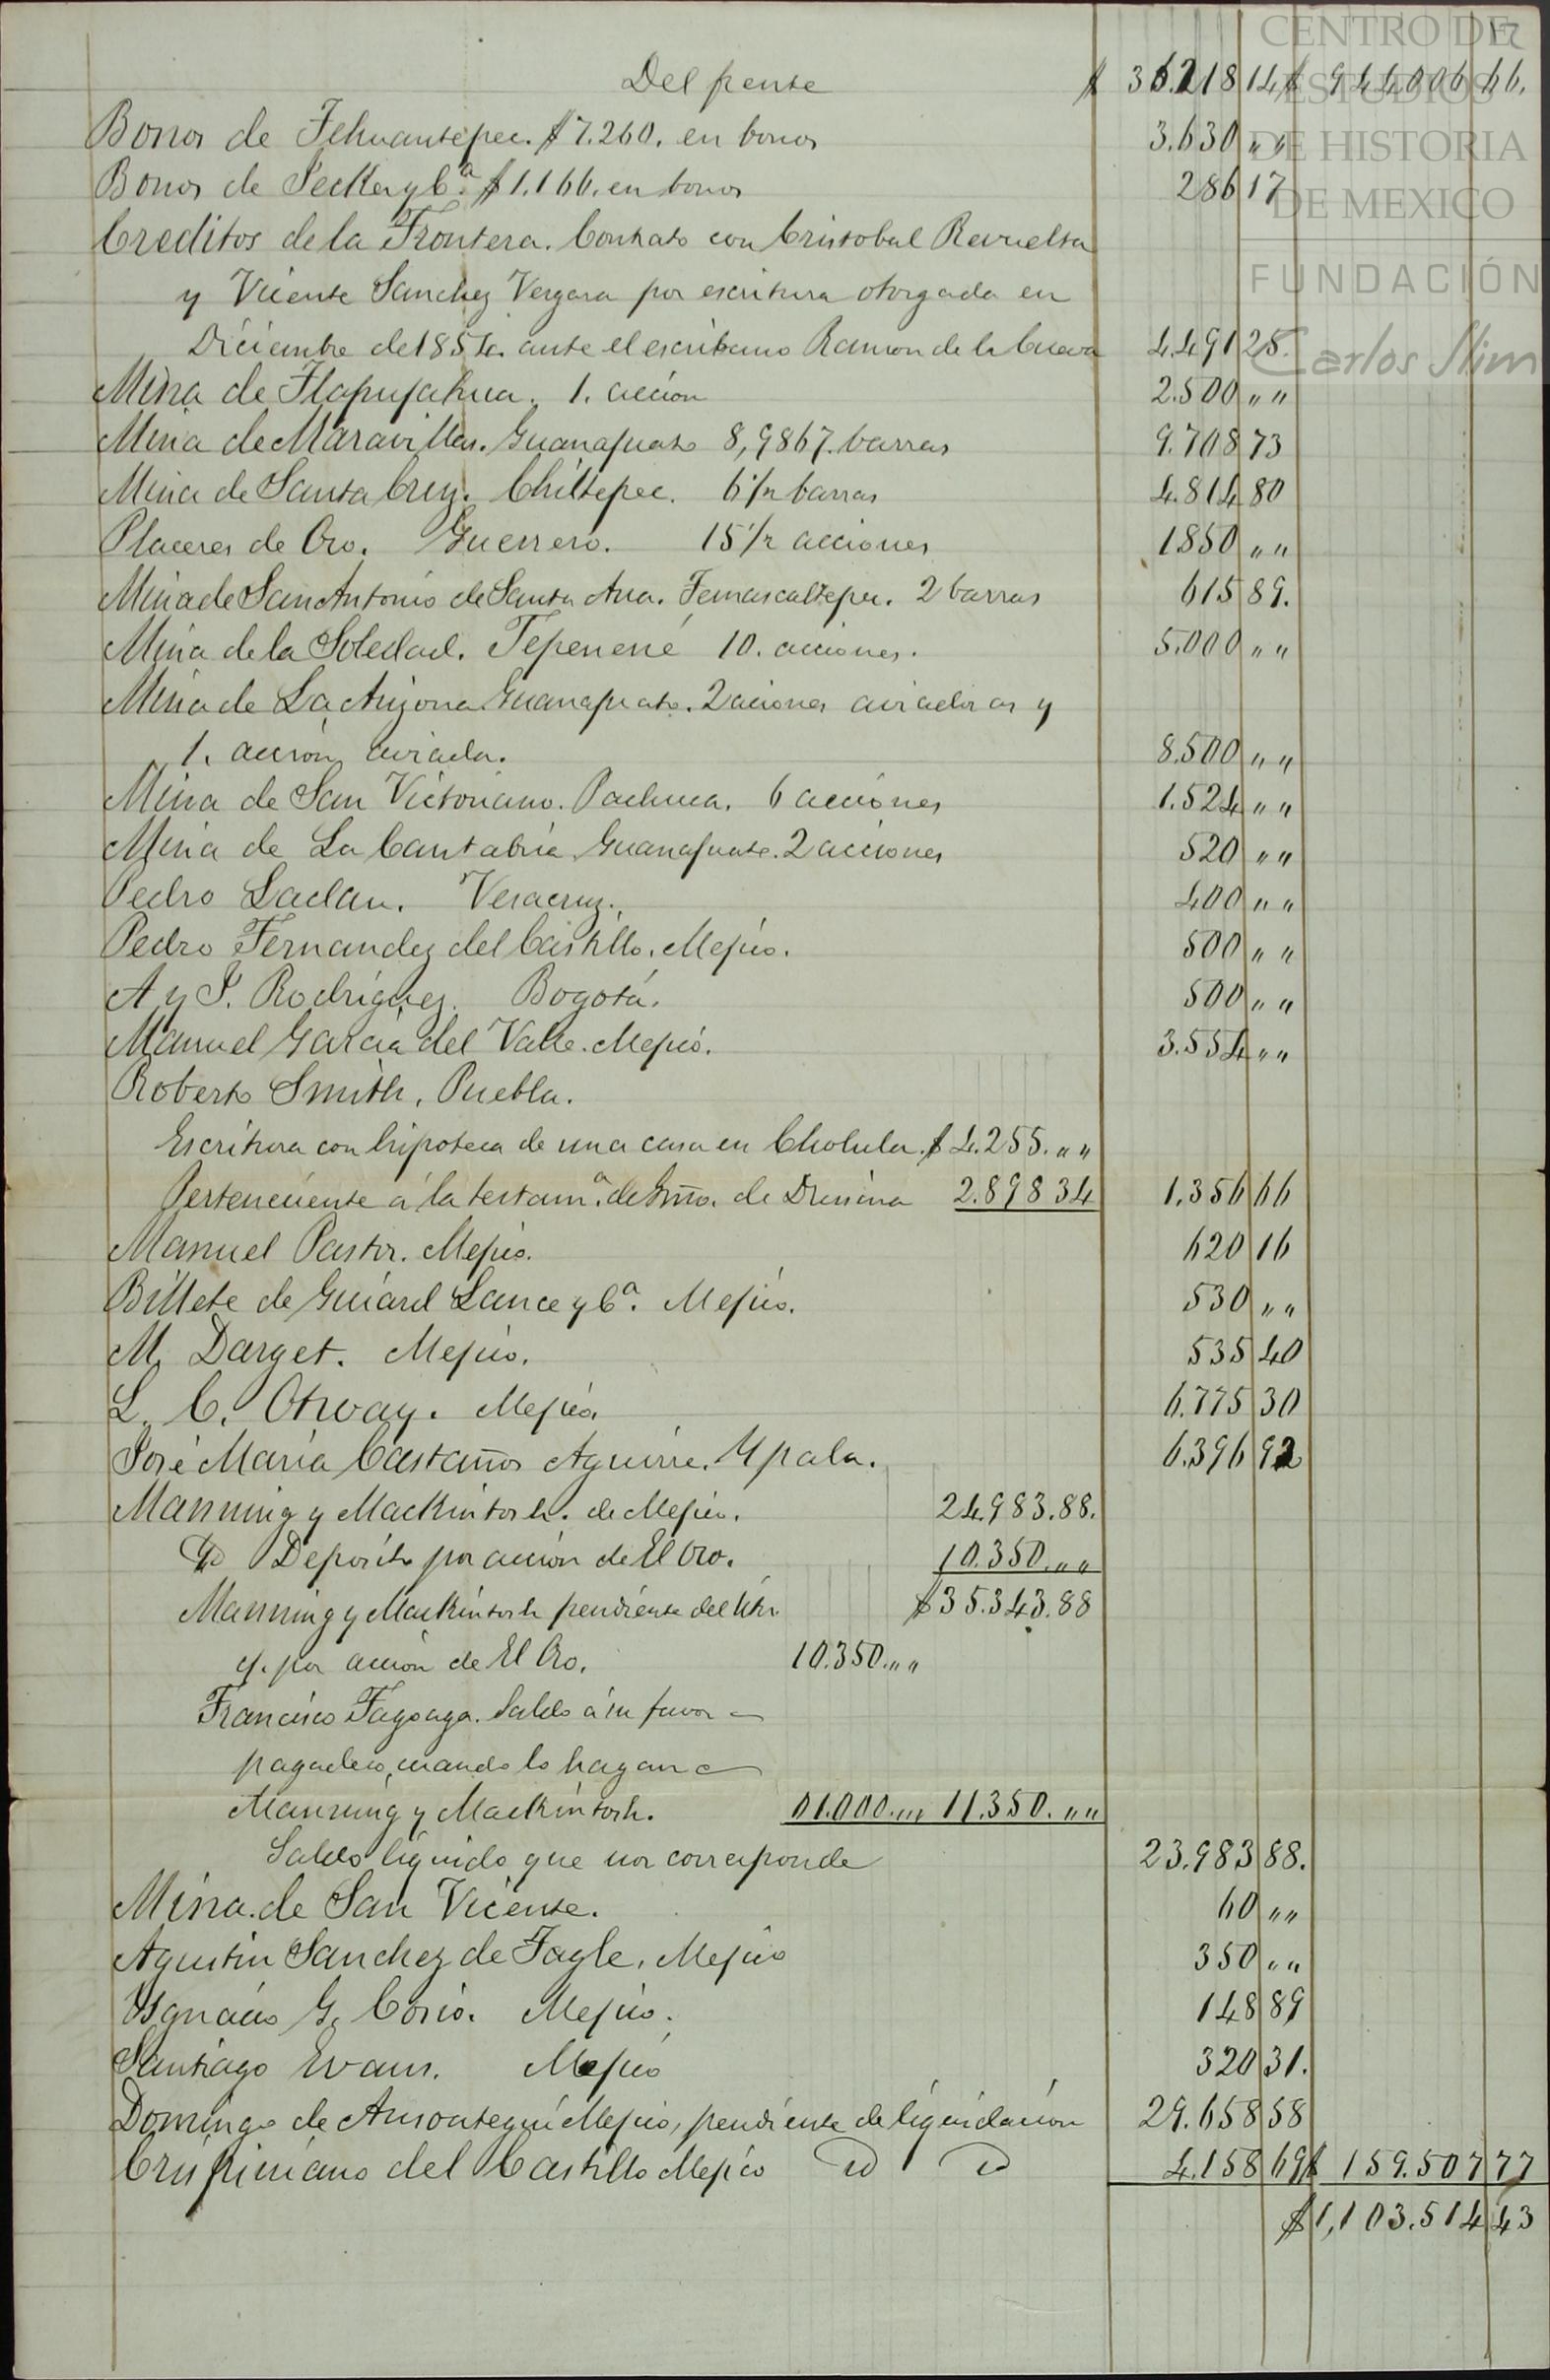 17
Del frente $ 36.218 14 $ 944.006 66.
Bonos de Tehuantepec. $7.260. en bonos 3.630 „ „
Bonos de Pecker y Cª $1.166. en bonos 286 17
Creditos de la Frontera. Contrato con Cristobal Revuelta
y Vicente Sanchez Vergara por escritura otorgada en
Diciembre de 1854. ante el escribano Ramon de la Cueva 4.491 25.
Mina de Tlapujahua. 1. accion 2.500 „ „
Mina de Maravillas. Guanajuato 8,9867. barras 9.708 73
Mina de Santa Cruz. Chiltepec. 6 1/2 barras 4.814 80
Placeres de Oro. Guerrero. 15 1/2 acciones 1850 „ „
Mina de San Antonio de Santa Ana. Temascaltepec. 2 barras 615 89.
Mina de la Soledad. Tepenené 10. acciones. 5.000 „ „
Mina de La Arizona Guanajuato. 2 aciones aviadoras y
1. accion aviada. 8.500 „ „
Mina de San Victoriano. Pachuca. 6 acciones 1.524 „ „
Mina de La Cantabria Guanajuato. 2 acciones 520 „ „
Pedro Laclau. Veracruz. 400 „ „
Pedro Fernandez del Castillo. Mejico. 500 „ „
A y P. Rodriguez. Bogotá. 500 „ „
Manuel Garcia del Valle. Mejico. 3.554 „ „
Roberto Smith, Puebla.
Escritura con hipoteca de una casa en Cholula. $ 4.255. „ „
Perteneciente á la testamª. de Gmo. de Drusina 2.898 34 1.356 66
Manuel Pastor. Mejico. 620 16
Billete de Guiard Lance y Cª. Mejico. 530 „ „
M. Darget. Mejico. 535 40
L. C. Otway. Mejico. 6.775 30
José Maria Castaños Aguirre. Ypala. 6.396 92
Manning y Mackintosh. de Mejico. 24.983.88.
Deposito por accion de El Oro. 10.350. „ „
Manning y Mackintosh pendiente del $35.343.88
q. por accion de El Oro. 10.350. „ „
Francisco Fagoaga. Saldo á su favor
pagadero, cuando lo hagan
Manning y Mackintosh. 01.000. „ „ 11.350. „ „
Saldo liquido que nos corresponde 23.983 88.
Mina de San Vicente. 60 „ „
Agustin Sanchez de Tagle. Mejico 350 „ „
Ygnacio G. Cosio. Mejico. 148 89
Santiago Evans. Mejico 320 31.
Domingo de Ansoategui Mejico, pendiente de liquidacion 29.658 58
Crispiniano del Castillo Mejico id id 4.158 69 $ 159.507 77
$1,103.514 43
CENTRO DE
ESTUDIOS
DE HISTORIA
DE MEXICO
FUNDACIÓN
Carlos Slim